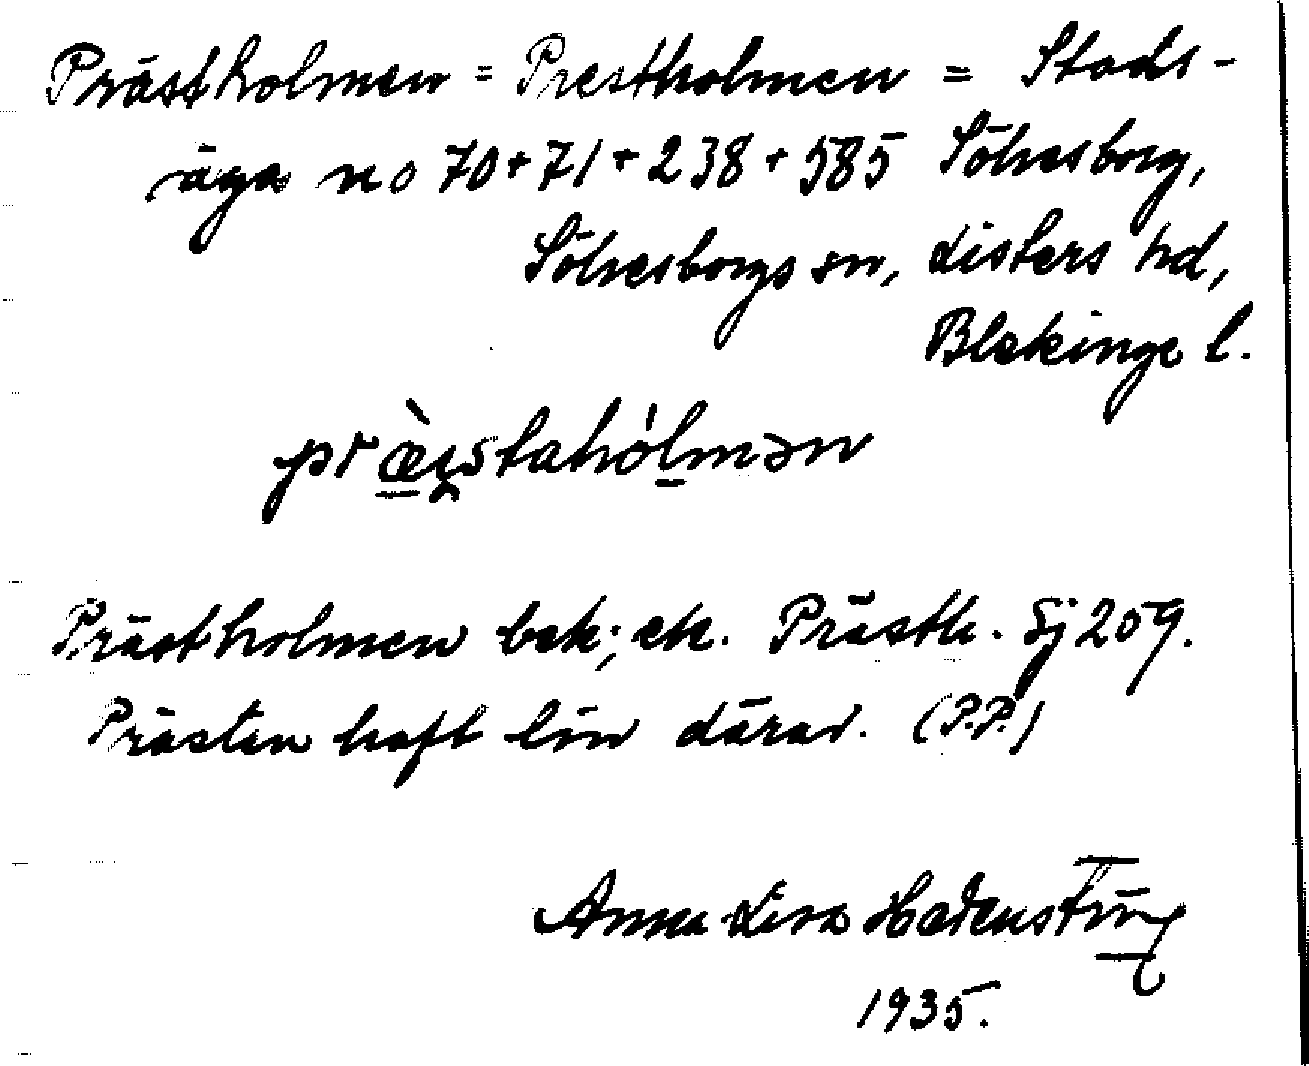 Prästholmen = Prestholmen = Stads-
äga no 70+71+238+585 Sölvesborg,
Sölvesborgs sn, Listers hd,
Blekinge l.
præi̯staholmən
Prästholmen bek; ek. Prästh. Sj 259.
Prästen haft lön därav. (P.P.)
Anna Lisa
1935.